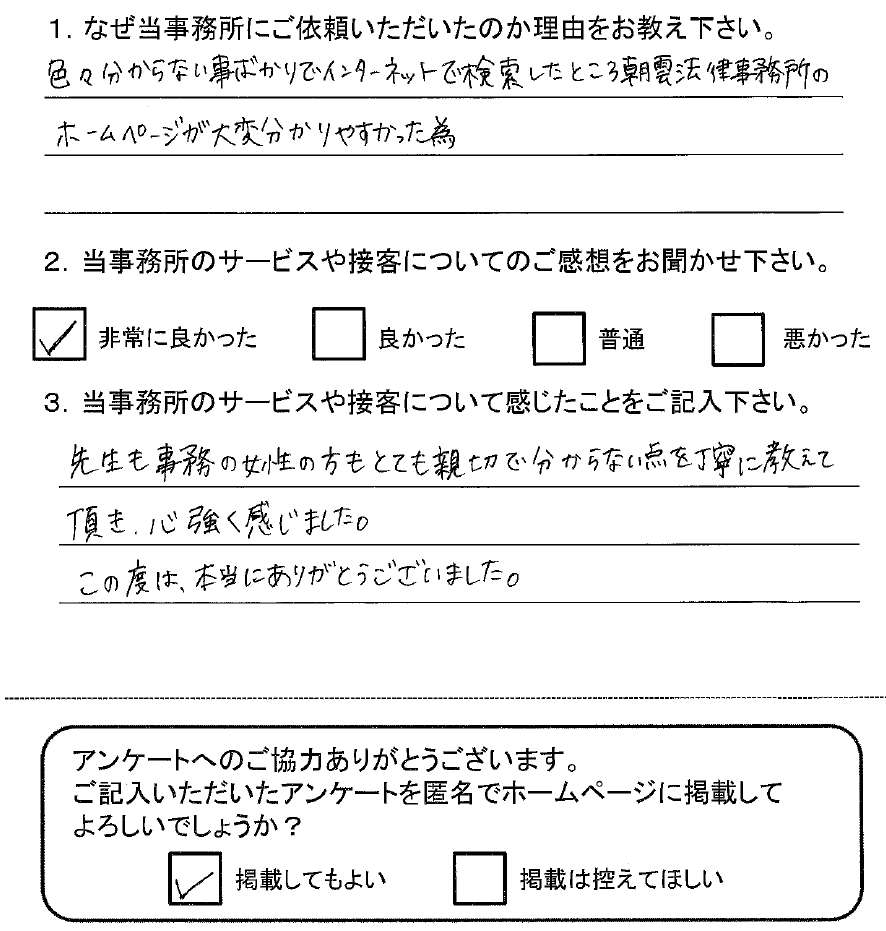 1. なぜ当事務所にご依頼いただいたのか理由をお教え下さい。
色々分からない事ばかりでインターネットで検索したところ朝雲法律事務所の
ホームページが大変分かりやすかった為
2. 当事務所のサービスや接客についてのご感想をお聞かせ下さい。
☑ 非常に良かった □ 良かった □ 普通 □ 悪かった
3. 当事務所のサービスや接客について感じたことをご記入下さい。
先生も事務の女性の方もとても親切で分からない点を丁寧に教えて
頂き、心強く感じました。
この度は、本当にありがとうございました。
アンケートへのご協力ありがとうございます。
ご記入いただいたアンケートを匿名でホームページに掲載して
よろしいでしょうか？
☑ 掲載してもよい □ 掲載は控えてほしい